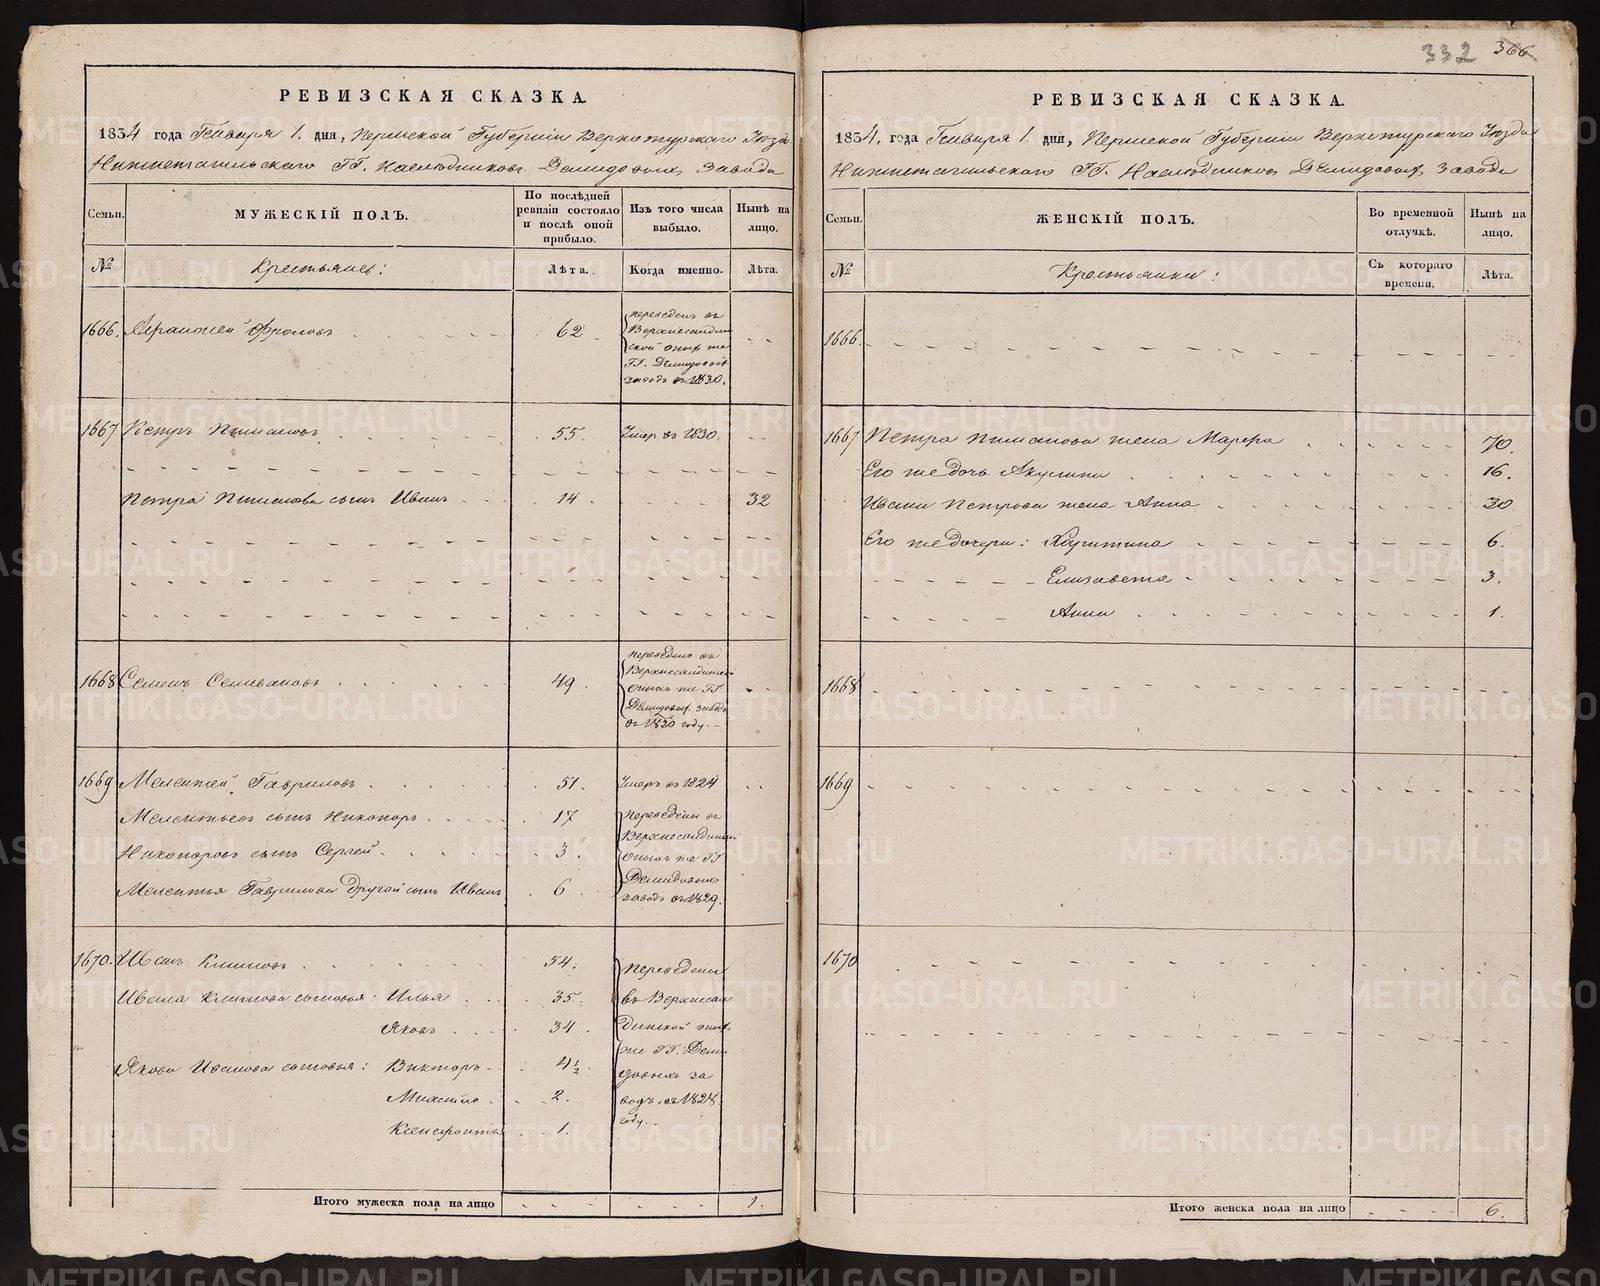 332 366
РЕВИЗСКАЯ СКАЗКА.
1834 года Генваря 1. дня, Пермской Губерніи Верхотурскаго Уезда
Нижнетагильскаго ГГ. Наслѣдниковъ Демидовыхъ Завода
Семьи.
МУЖЕСКІЙ ПОЛЪ.
По послѣдней ревизіи состояло и послѣ оной прибыло.
Изъ того числа выбыло.
Нынѣ на лицо.
№
Крестьянъ:
Лѣта.
Когда именно.
Лѣта.
1666. Фроловъ 62
переведенъ въ
Верхнесалдин
ской оныхъ же
ГГ. Демидовыхъ
заводъ въ 1830.
1667 Петръ Пимановъ 55. Умер въ 1830.
Петра Пиманова сынъ Иванъ 14. 32
1668 Семенъ Селивановъ 49.
переведенъ въ
Верхнесалдинской
оныхъ же ГГ
Демидовыхъ заводъ
въ 1830 году.
1669 Мелентей Гавриловъ 51. Умеръ въ 1824
Мелентьевъ сынъ Никопоръ 17 переведены въ
Никопоровъ сынъ Сергей 3. Верхнесалдинской
оныхъ же ГГ
Мелентья Гаврилова другой сынъ Иванъ 6 Демидовыхъ
заводъ въ 1829.
1670. Иванъ Климовъ 54. переведены
Ивана Климова сыновья: Илья 35. въ Верхнесал
Яковъ 34. динской оныхъ
же ГГ. Деми
Якова Иванова сыновья: Викторъ 4½. довыхъ за
Михайло 2. водъ, въ 1828
году.
Ксенофонтъ 1.
Итого мужеска пола на лицо 1.
РЕВИЗСКАЯ СКАЗКА.
1834. года Генваря 1. дня, Пермской Губерніи Верхотурскаго Уезда
Нижнетагильскаго ГГ. Наслѣдниковъ Демидовыхъ Завода
Семьи.
ЖЕНСКІЙ ПОЛЪ.
Во временной отлучкѣ.
Нынѣ на лицо.
№
Крестьянки:
Съ котораго времени.
Лѣта.
1666.
1667 Петра Пиманова жена Марфа 70.
Его же дочь Акулина 16.
Ивана Петрова жена Анна 30.
Его же дочери: Харитина 6.
Елизавета 3.
Анна 1.
1668
1669
1670
Итого женска пола на лицо 6.
METRIKI.GASO-URAL.RU